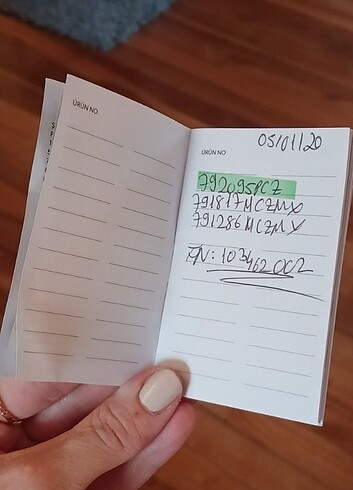 ÜRÜN NO
05/01/20
ÜRÜN NO
792095PCZ
791817MCZMX
791286MCZMX
103462OCZ